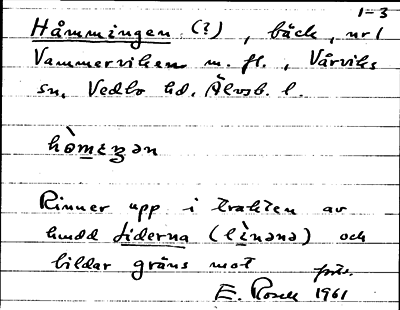 1-3
Håmmingen (?), bäck, nr 1
Vammerviken m. fl., Vårviks
sn, Vedbo hd, Älvsb. l.
Rinner upp i trakten av
hmdd Liderna (lìnənə) och
bildar gräns mot
E. Rosell 1961